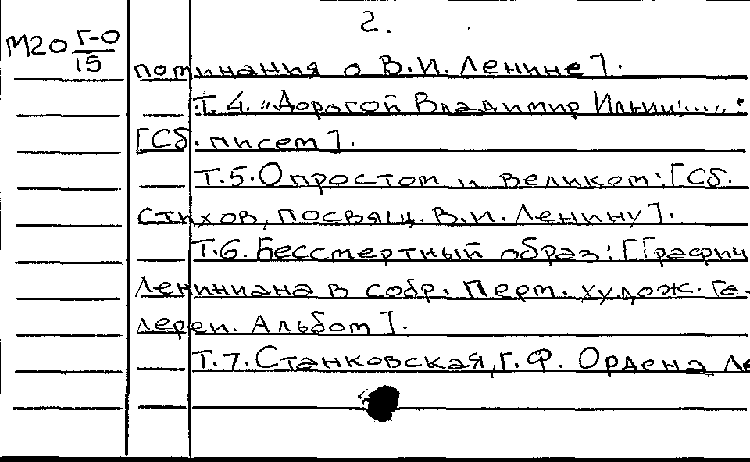 2.
М20 Г-О
15
поминания о В.И. Ленине].
Т.4. "Дорогой Владимир Ильич!...":
[Сб. писем].
Т.5. О простом и великом: [Сб.
стихов, посвящ. В.И. Ленину].
Т.6. Бессмертный образ: [Графич
Лениниана в собр. Перм. худож. га-
лереи. Альбом].
Т.7. Станковская, Г.Ф. Ордена Ле